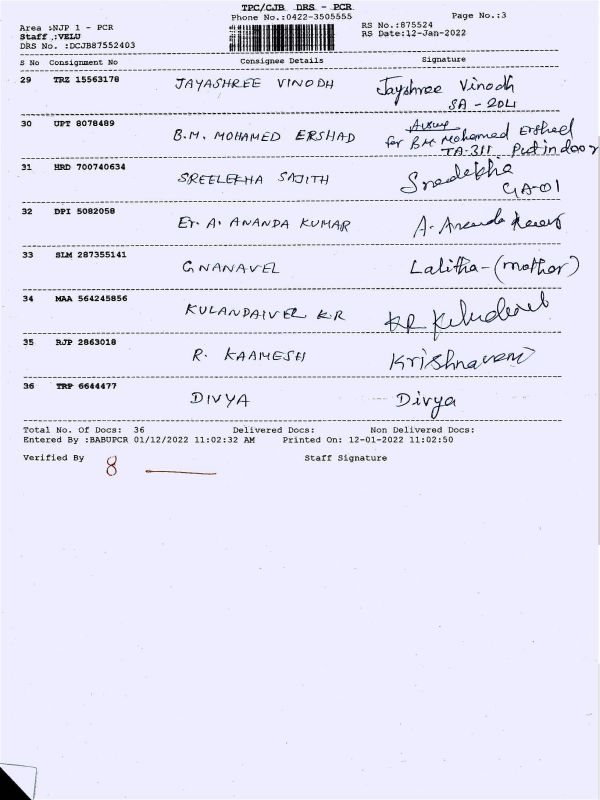 TPC/CJB DRS - PCR
Phone No.:0422-3505555
Page No.:3
Area :NJP 1 - PCR
RS No.:875524
Staff :VELU
RS Date:12-Jan-2022
DRS No. :DCJB87552403
S No Consignment No Consignee Details Signature
29 TRZ 15563178 JAYASHREE VINODH Jayshree Vinodh
SA - 204
30 UPT 8078489 B.M. MOHAMED ERSHAD
for B.M. Mohamed Ershad
TA-311 Put in door
31 HRD 700740634 SREELEKHA SAJITH Sreelekha
GA-01
32 DPI 5082058 Er. A. ANANDA KUMAR A. Ananda
33 SLM 287355141 GNANAVEL Lalitha - (mother)
34 MAA 564245856 KULANDAIVEL K.R KR
35 RJP 2863018 R. KAAMESH Krishnaveni
36 TRP 6644477 DIVYA Divya
Total No. Of Docs: 36 Delivered Docs: Non Delivered Docs:
Entered By :BABUPCR 01/12/2022 11:02:32 AM Printed On: 12-01-2022 11:02:50
Verified By 8 Staff Signature